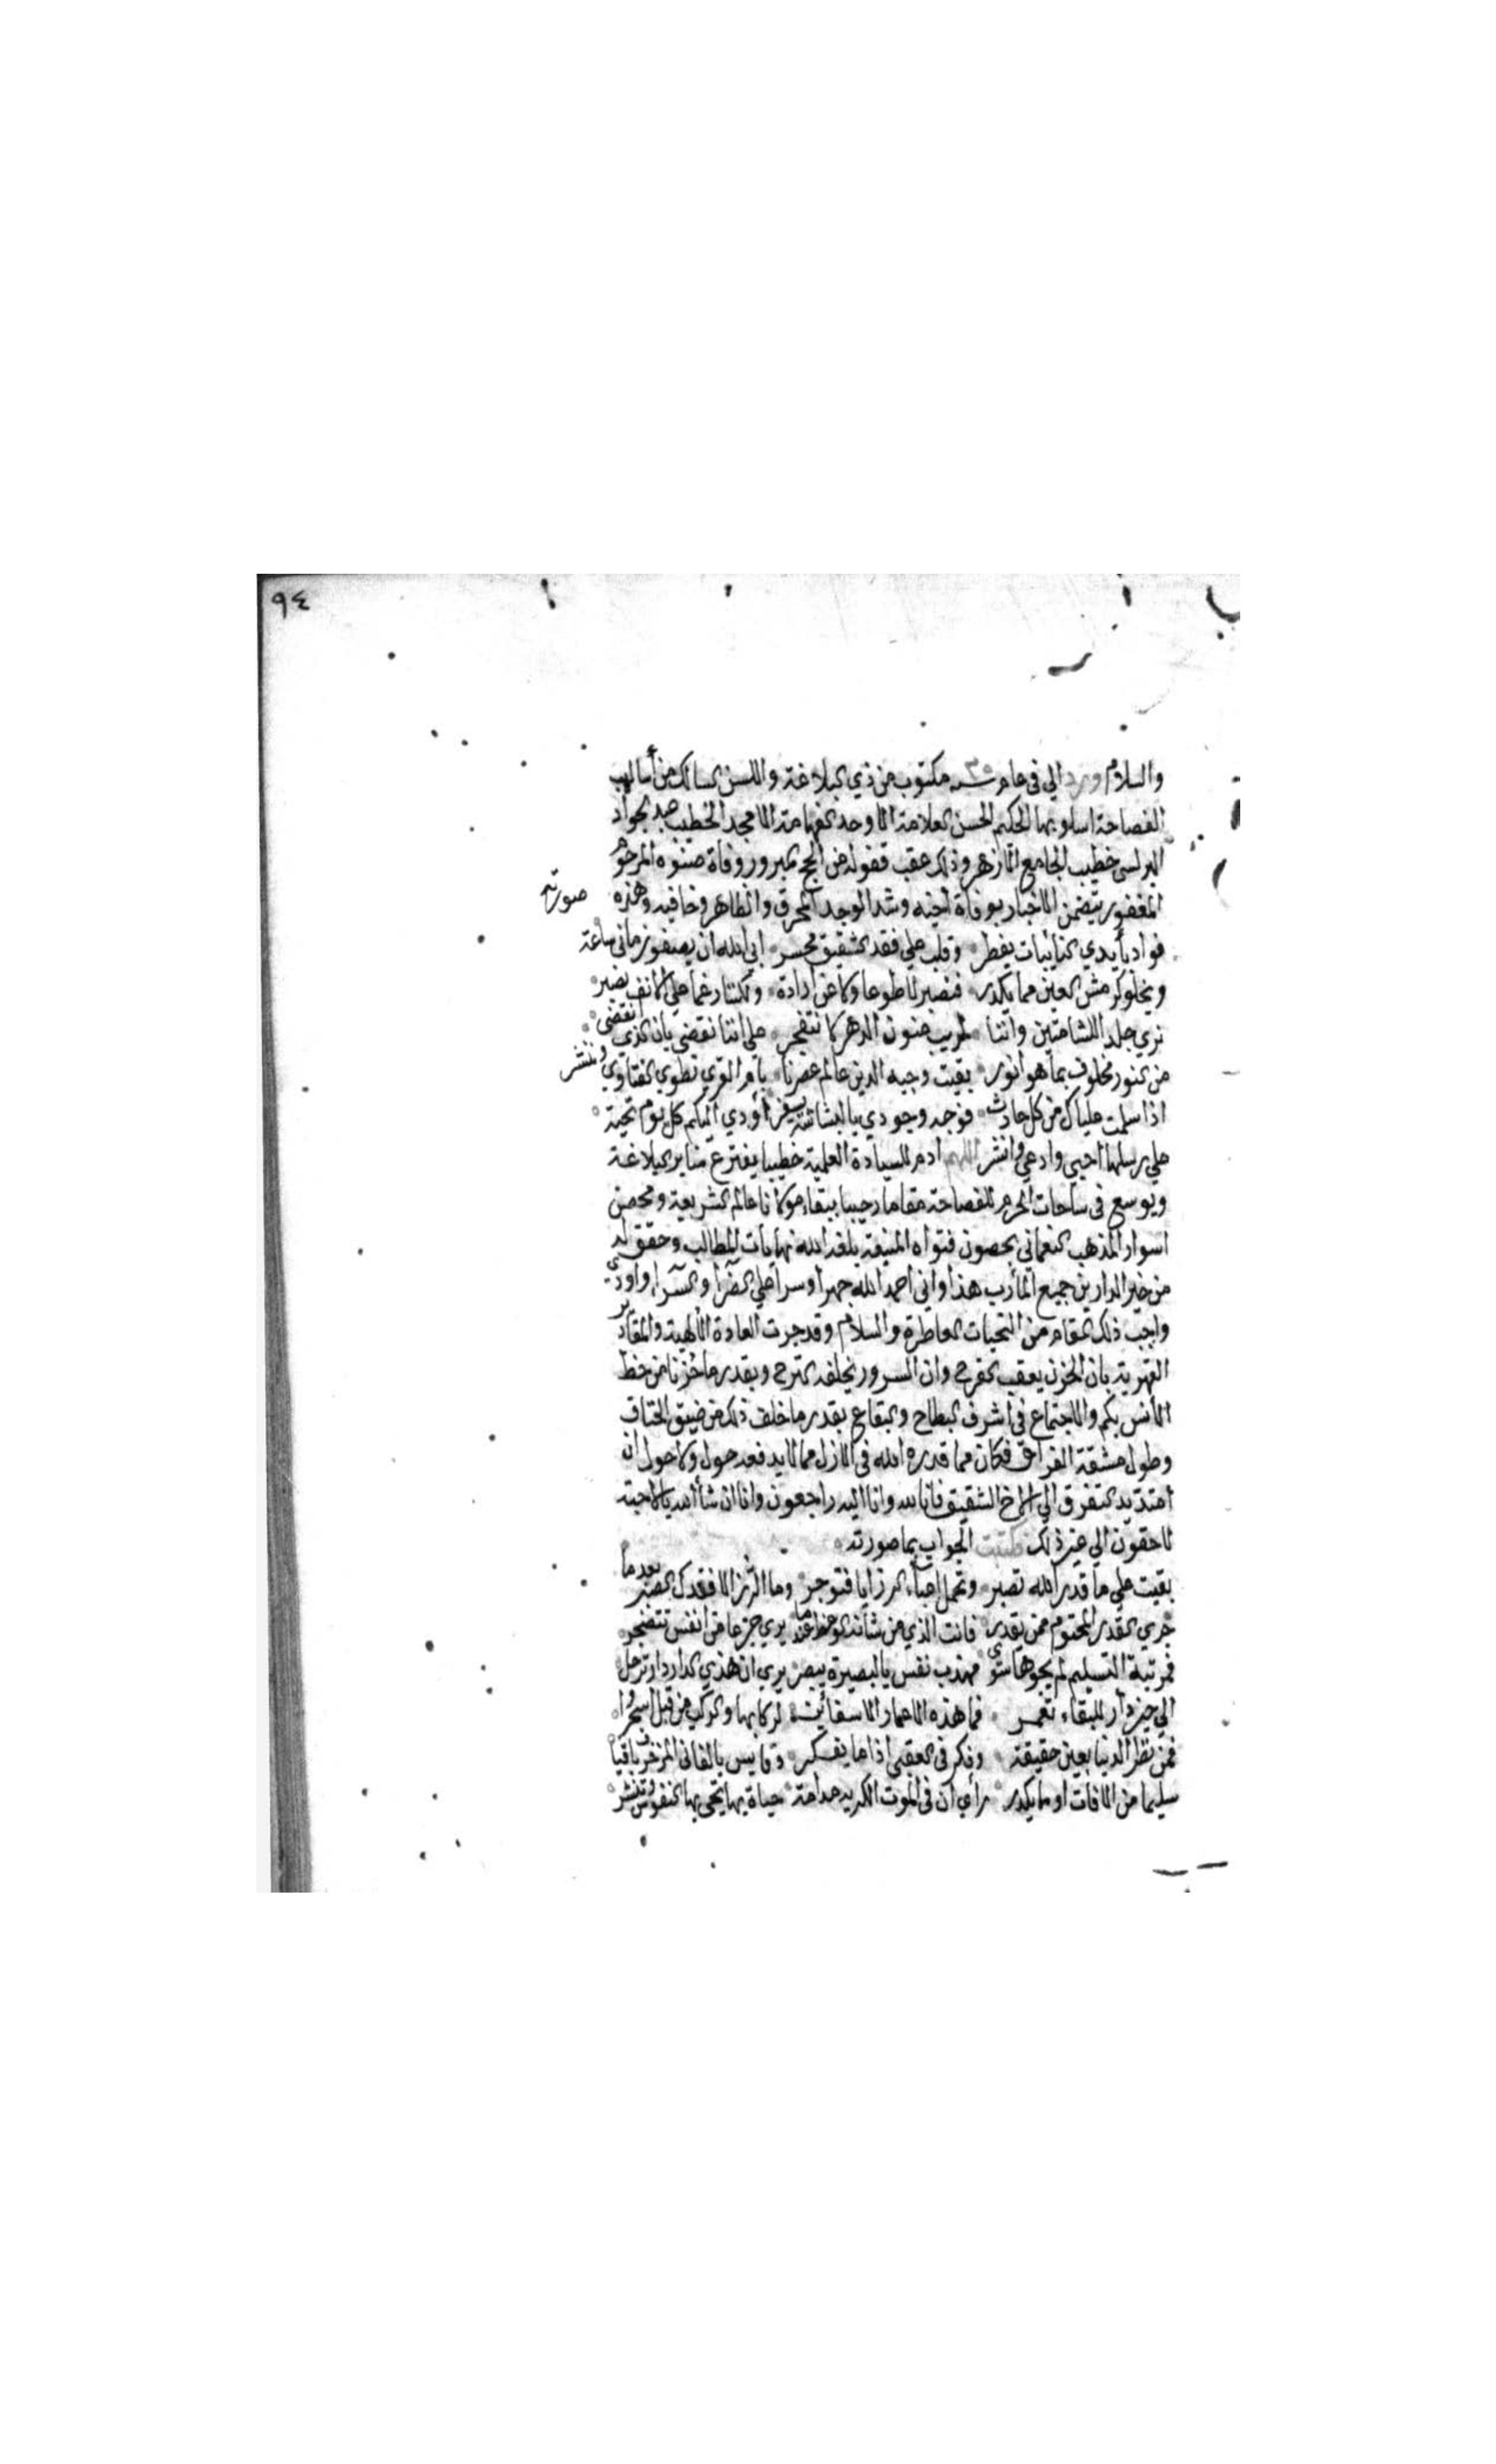 ٩٤
والسلام ورد الي في عام سنه مكتوب من ذي البلاغة واللسن السالك من أساليب
الفصاحة اسلوبها الحكيم الحسن العلامة الاوحد الفهامة الامجد الخطيب عبد الجواد
البرلسي خطيب الجامع الازهر وذلك عقب قفوله من الحج المبرور ووفاة صنوه المرحوم
المغفور يتضمن الاخبار بوفاة اخيه وشد الوجد المحرق والظاهر وخافيه وهذه صورته
فواد بأيدي النايبات يفطر وقلب علي فقد الشقيق محسر ابي الله ان يصفو زماني ساعة
ويخلو كر مش العين مما يكدر فنصبر لا طوعا ولا عن ارادة ولكننا رغما علي الانف نصبر
نري جلد اللشامتين واننا لريب منون الدهر لا نتفجر علي اننا نقضي بان الذي انقضي
من النور مخلوف بما هو انور بقيت وجيه الدين عالم عصرنا بام القري تطوي الفتاوي وتنشر
اذا سلمت علياك من كل حادث فوجه وجودي بالبشاشة يسفر أودي اليكم كل يوم تحية
علي رسلها احيي وادعي وانشر اللهم ادم للسيادة العلمية خطيبا يفترع منابر البلاغة
ويوسع في ساحات الحرم للفصاحة مقاما رحيبا ببقاء مولانا عالم الشريعة ومحصن
اسوار المذهب النعماني بحصون فتواه المنيفة بلغه الله نهايات المطالب وحقق له
من خير الدارين جميع المأرب هذا واني احمد الله جهرا وسرا علي الضرا والسرا واودي
واجب ذلك المقام من التحيات العاطرة والسلام وقد جرت العادة الالهية والمقادير
القهرية بان الحزن يعقب الفرح وان السرور يخلفه الترح وبقدر ما حزنا من حظ
الانس بكم والاجتماع في اشرف البطاح والبقاع بقدر ما خلف ذلك من ضيق الخناق
وطول مشقة الفراق فكان مما قدره الله في الازل مما لا يدفعه حول ولا حول ان
امتدت يد التفرق الي الاخ الشقيق فانا لله وانا اليه راجعون وانا ان شأ الله بالاحبة
لاحقون الي غير ذلك فكتبت الجواب بما صورته
بقيت علي ما قدر الله تصبر وتحمل اعباء الرزايا فتوجر وما الرز الا فقدك الصبر بعد ما
جري القدر المحتوم ممن يقدر فانت الذي من شأنه الوعظ عندما يري جزعا من انفس تتضجر
فمرتبة التسليم لم يحوها سوي مهذب نفس بالبصيرة يبصر يري ان هذي الدار دار ترحل
الي خير دار للبقاء تعمر فما هذه الاعمار الا سفائن لركابها والركب من قبل ابحروا
فمن نظر الدنيا بعين حقيقة وفكر في العقبي اذا ما يفكر وقايس بالفاني المزخرف باقيا
سليما من الافات او ما يكدر رأي ان في الموت الكريه مدامة حياة بها تحي بها النفوس وتنشر